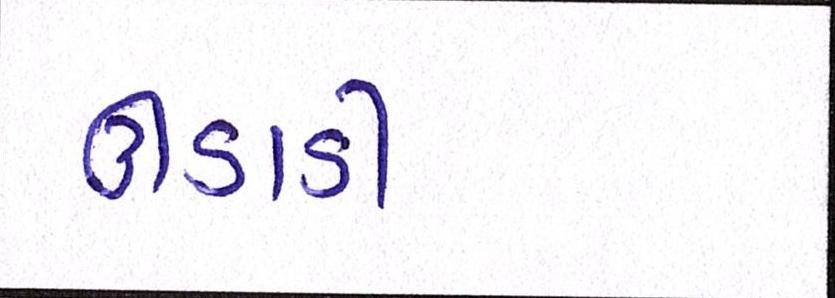 ઊડાડી